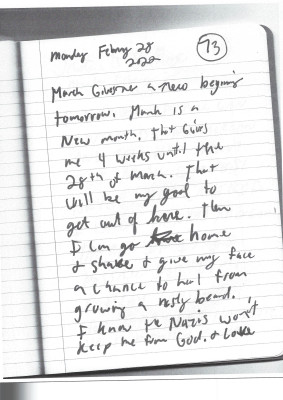 Monday Febury 28 73
2022
March Gives me a new begining
tomorrow. March is a
New month. That Gives
me 4 weeks until the
28th of March. That
will be my goal to
get out of here. Then
I can go home
& shave & give my face
a chance to heal from
growing a nasty beard.
I know the Nazis won't
keep me from God. & Love